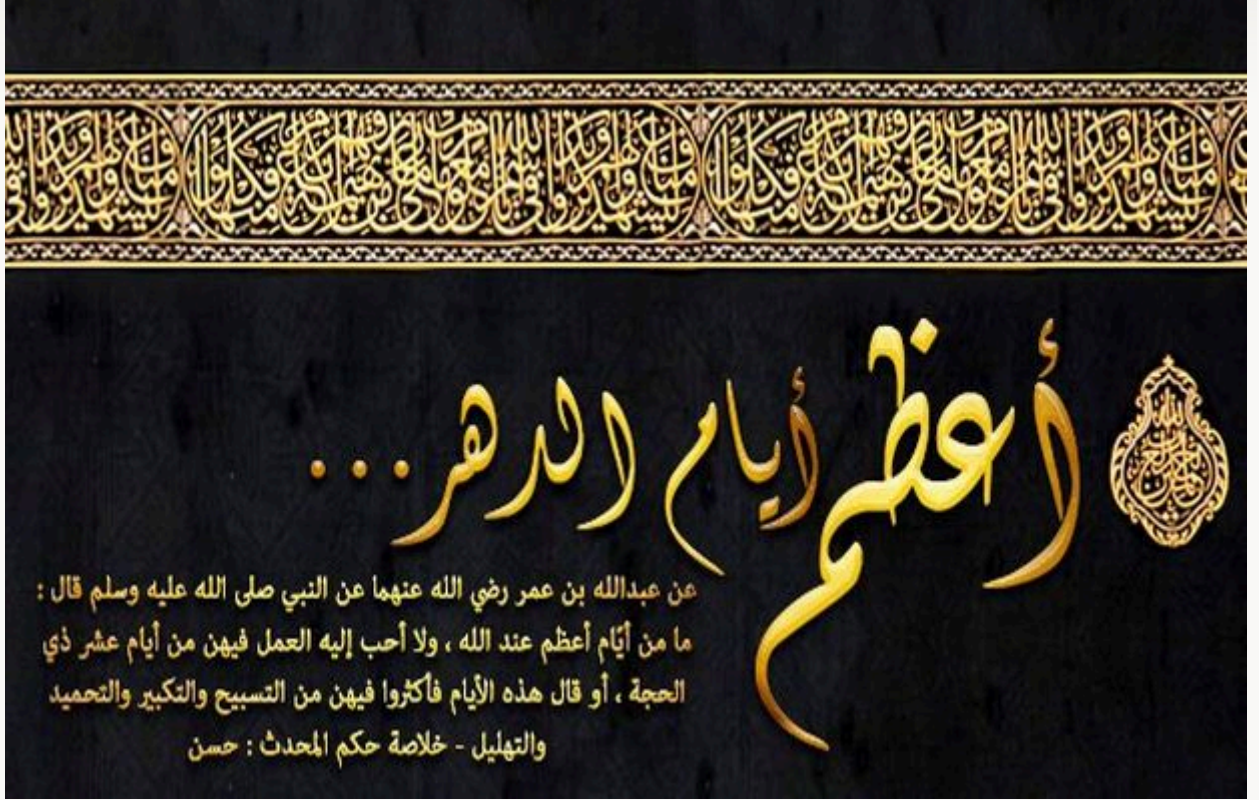 أعظم أيام الدهر...
عن عبدالله بن عمر رضي الله عنهما عن النبي صلى الله عليه وسلم قال :
ما من أيّام أعظم عند الله ، ولا أحب إليه العمل فيهن من أيام عشر ذي
الحجة ، أو قال هذه الأيام فأكثروا فيهن من التسبيح والتكبير والتحميد
والتهليل - خلاصة حكم المحدث : حسن